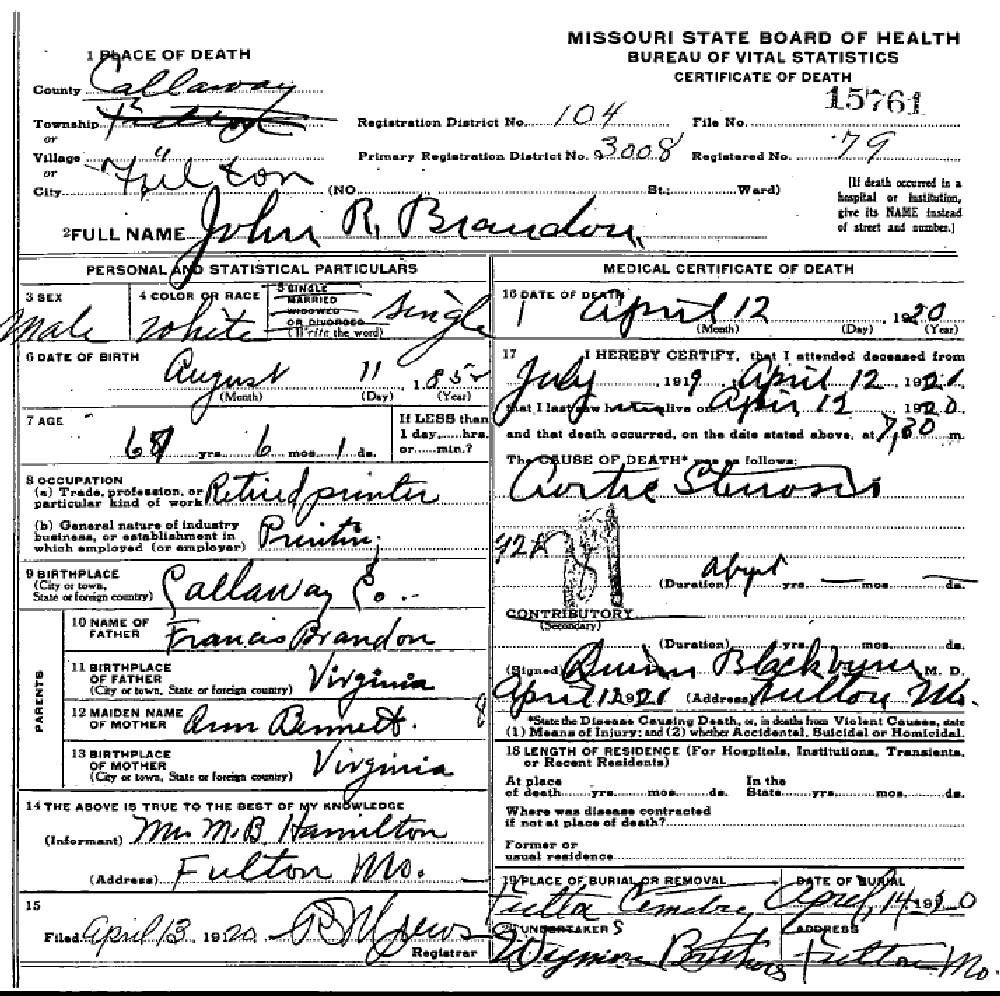 MISSOURI STATE BOARD OF HEALTH
BUREAU OF VITAL STATISTICS
CERTIFICATE OF DEATH
1 PLACE OF DEATH
County Callaway
Township
or
Village
or
City Fulton (NO. St.; Ward)
Registration District No. 104 File No. 15761
Primary Registration District No. 3008 Registered No. 79
[If death occurred in a
hospital or institution,
give its NAME instead
of street and number.]
2 FULL NAME John R. Brandon
PERSONAL AND STATISTICAL PARTICULARS
3 SEX
Male
4 COLOR OR RACE
White
5 SINGLE
MARRIED
WIDOWED
OR DIVORCED
(Write the word)
Single
6 DATE OF BIRTH
August 11, 185
(Month) (Day) (Year)
7 AGE
yrs. 6 mos. 1 ds.
If LESS than
1 day,.....hrs.
or.....min.?
8 OCCUPATION
(a) Trade, profession, or
particular kind of work Retired printer
(b) General nature of industry
business, or establishment in
which employed (or employer) Printing
9 BIRTHPLACE
(City or town,
State or foreign country) Callaway Co.
PARENTS
10 NAME OF
FATHER Francis Brandon
11 BIRTHPLACE
OF FATHER
(City or town, State or foreign country) Virginia
12 MAIDEN NAME
OF MOTHER Ann Bennett
13 BIRTHPLACE
OF MOTHER
(City or town, State or foreign country) Virginia
14 THE ABOVE IS TRUE TO THE BEST OF MY KNOWLEDGE
(Informant) Mrs M.B. Hamilton
(Address) Fulton Mo.
15
Filed April 13 1920
Registrar
MEDICAL CERTIFICATE OF DEATH
16 DATE OF DEATH
April 12, 1920
(Month) (Day) (Year)
17 I HEREBY CERTIFY, that I attended deceased from
July, 1919, April 12, 192
that I last saw h alive on April 12 1920,
and that death occurred, on the date stated above, at 7,30 m.
The CAUSE OF DEATH* was as follows:
Aortic Stenosis
(Duration) yrs. mos. ds.
CONTRIBUTORY
(Secondary)
(Duration) yrs. mos. ds.
(Signed) Blackburn M. D.
April 12 (Address) Fulton Mo.
*State the Disease Causing Death, or, in deaths from Violent Causes, state
(1) Means of Injury; and (2) whether Accidental, Suicidal or Homicidal.
18 LENGTH OF RESIDENCE (For Hospitals, Institutions, Transients,
or Recent Residents)
At place
of death yrs. mos. ds.
In the
State yrs. mos. ds.
Where was disease contracted
if not at place of death?
Former or
usual residence
19 PLACE OF BURIAL OR REMOVAL
Fulton Cemetery
DATE OF BURIAL
April, 14 1920
20 UNDERTAKERS
Brothers
ADDRESS
Fulton Mo.